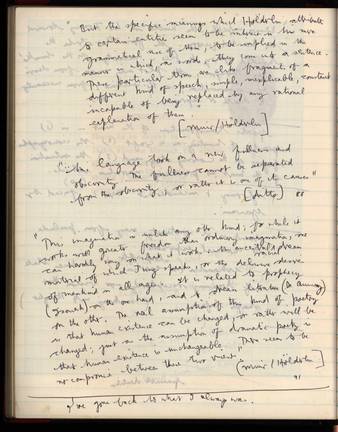 "But the specific meanings which Hölderlin attributes
to certain entities seem to be inherent in his mere
grammatical use of them, to be implied in the
manner in which, as words, they join into a sentence.
These particular terms are like fragments of a
different kind of speech, simple, inexplicable, constant
incapable of being replaced by any rational
explanation of them.
[Muir/Hölderlin]
"The language took on a new fullness and
obscurity. The fullness cannot be separated
from the obscurity, or rather it is one of its causes"
[ditto] 88
"This imagination is unlike any other kind; for while it
works with greater freedom than ordinary imagination, one
can hardly say on what it works, unless on the ancestral
material of which I may speak, on the dream
of mankind in all ages. It is related to prophecy
(Isaiah) on the one hand, and to dream literature (
on the other. The real assumption of this kind of poetry
is that human existence can be changed, or rather will be
changed; just as the assumption of dramatic poetry is
that human existence is unchangeable. There seem to be
no compromise between these two views.
[Muir/Hölderlin]
91
I've gone back to what I always was.